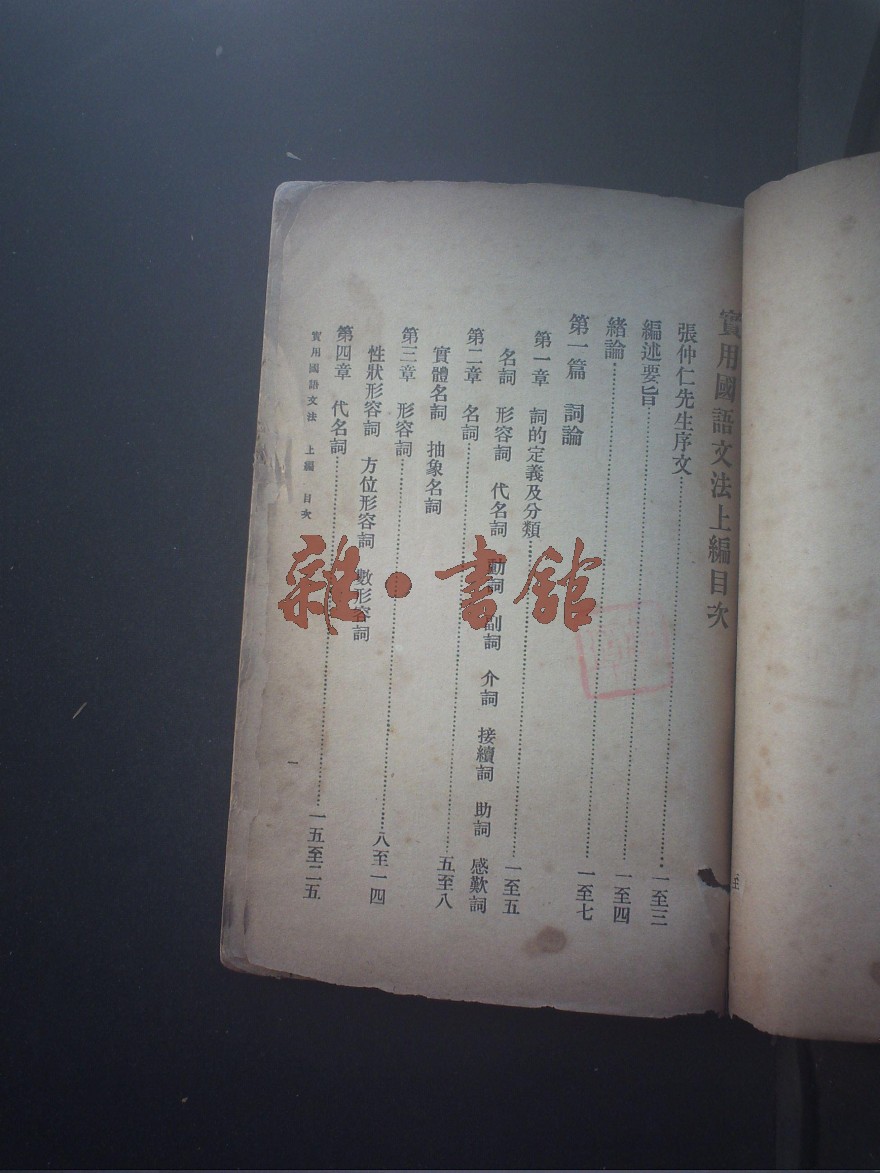 實用國語文法上編目次
張仲仁先生序文……一至三
編述要旨……一至四
緒論……一至七
第一篇　詞論
第一章　詞的定義及分類……一至五
名詞　形容詞　代名詞　動詞　副詞　介詞　接續詞　助詞　感歎詞
第二章　名詞……五至八
實體名詞　抽象名詞
第三章　形容詞……八至一四
性狀形容詞　方位形容詞　數形容詞
第四章　代名詞……一五至二五
實用國語文法　上編　目次
一
雜·書館